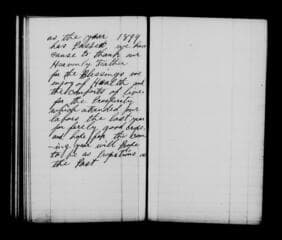 as the year 1899
has Passed, we have
cause to thank our
Heavenly Father
for the Blessings we
enjoy of Health and
the comforts of live
for the Prosperity
which attended our
labors the last year
for
and hope for the com-
ing year will Prove
to be as Propitious as
the Past